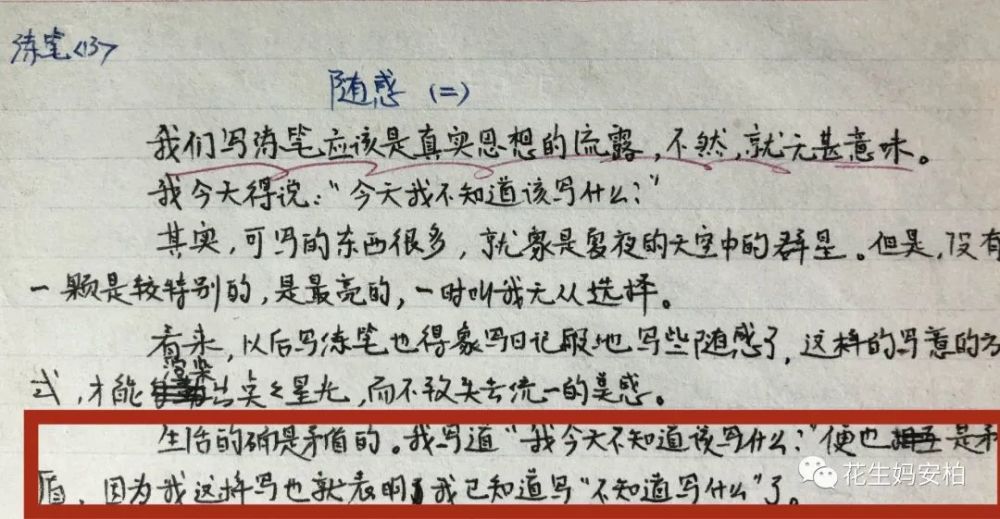 练笔<13>
随感(二)
我们写练笔应该是真实思想的流露,不然,就无甚意味。
我今天得说:“今天我不知道该写什么?”
其实,可写的东西很多,就象是夏夜的天空中的群星。但是,没有
一颗是较特别的,是最亮的,一时叫我无从选择。
看来,以后写练笔也得象写日记般地写些随感了,这样的写意的方
式,才能 出 星光,而不致失去统一的美感。
生活的确是矛盾的。我写道“我今天不知道该写什么?”便也是矛
盾,因为我这样写也就表明了我已知道写“不知道写什么”了。
花生妈安柏